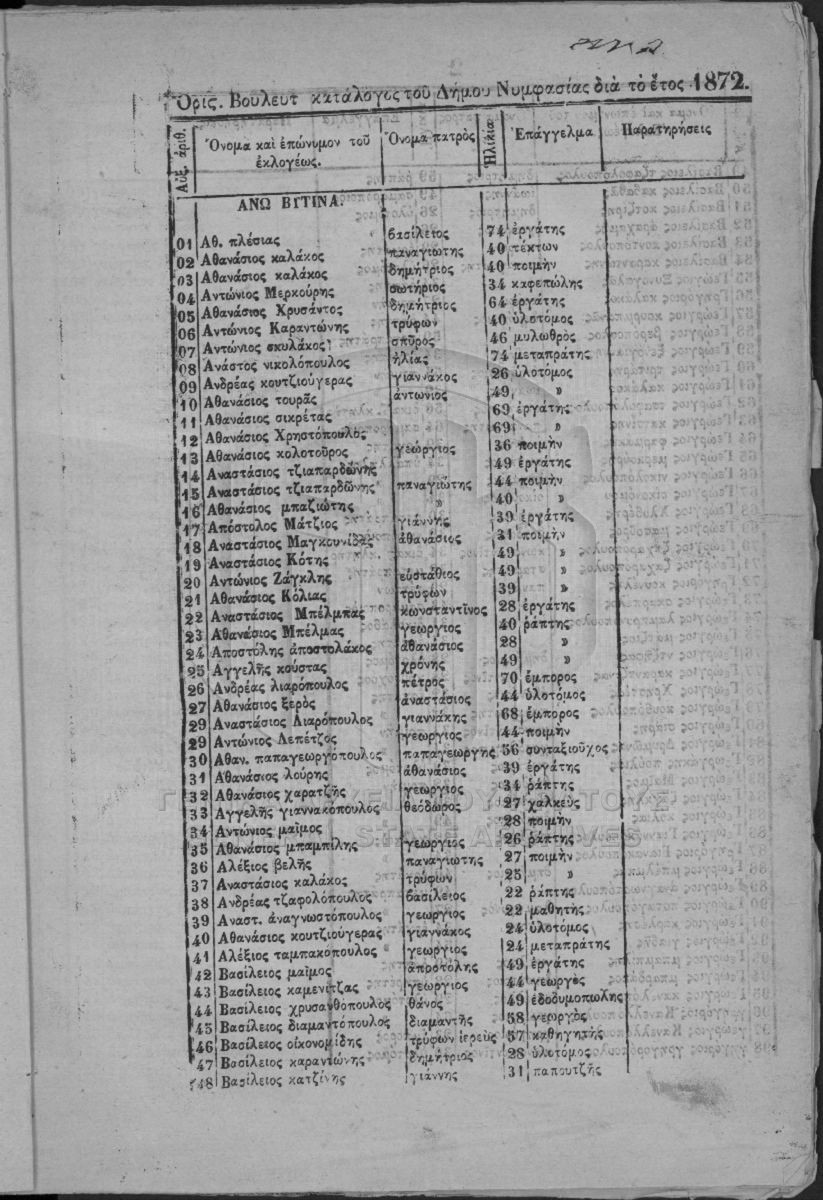 Ὁρις. Βουλευτ κατάλογος τοῦ Δήμου Νυμφασίας διὰ τὸ ἔτος 1872.
Αὔξ. ἀριθ. Ὄνομα καὶ ἐπώνυμον τοῦ ἐκλογέως. Ὄνομα πατρὸς Ἡλικία Ἐπάγγελμα Παρατηρήσεις
ΑΝΩ ΒΥΤΙΝΑ.
01 Αθ. πλέσιας βασίλειος 74 ἐργάτης
02 Αθανάσιος καλάκος παναγιωτης 40 τέκτων
03 Αθανάσιος καλάκος δημήτριος 40 ποιμὴν
04 Αντώνιος Μερκούρης σωτήριος 34 καφεπώλης
05 Αθανάσιος Χρυσάντος δημήτριος 64 ἐργάτης
06 Αντώνιος Καραντώνης τρύφων 40 ὑλοτόμος
07 Αντώνιος σκυλάκος σπῦρος 46 μυλωθρὸς
08 Ανάστος νικολόπουλος ἠλίας 74 μεταπράτης
09 Ανδρέας κουτζιούγερας γιαννάκος 26 ὑλοτόμος
10 Αθανάσιος τουρᾶς ἀντώνιος 49 »
11 Αθανάσιος σικρέτας 69 ἐργάτης
12 Αθανάσιος Χρηστόπουλος 69 »
13 Αθανάσιος κολοτοῦρος γεώργιος 36 ποιμὴν
14 Αναστάσιος τζιαπαρδώνης 49 ἐργάτης
15 Αναστάσιος τζιαπαρδώνης παναγιώτης 44 ποιμὴν
16 Αθανάσιος μπαζιώτης » 40 »
17 Απόστολος Μάτζιος γιάννης 39 ἐργάτης
18 Αναστάσιος Μαγκουνίδας ἀθανάσιος 31 ποιμὴν
19 Αναστάσιος Κότης 49 »
20 Αντώνιος Ζάγκλης εὐστάθιος 49 »
21 Αθανάσιος Κόλιας τρύφων 39 »
22 Αναστάσιος Μπέλμπας κωνσταντῖνος 28 ἐργάτης
23 Αθανάσιος Μπέλμας γεωργιος 40 ῥάπτης
24 Αποστόλης ἀποστολάκος ἀθανάσιος 28 »
25 Αγγελῆς κούστας χρόνης 49 »
26 Ανδρέας λιαρόπουλος πέτρος 70 ἔμπορος
27 Αθανάσιος ξερὸς ἀναστάσιος 44 ὑλοτόμος
29 Αναστάσιος Λιαρόπουλος γιαννάκης 68 ἔμπορος
29 Αντώνιος Λεπέτζος γεωργιος 44 ποιμὴν
30 Αθαν. παπαγεωργόπουλος παπαγεωργης 56 συνταξιοῦχος
31 Αθανάσιος λούρης ἀθανάσιος 39 ἐργάτης
32 Αθανάσιος χαρατζῆς γεωργιος 34 ῥάπτης
33 Αγγελῆς γιαννακόπουλος θεόδωρος 27 χαλκεὺς
34 Αντώνιος μαῖμος 28 ποιμὴν
35 Αθανάσιος μπαμπίλης γεωργιος 26 ῥάπτης
36 Αλέξιος βελῆς παναγιωτης 27 ποιμὴν
37 Αναστάσιος καλάκος τρύφων 25 »
38 Ανδρέας τζαφολόπουλος βασίλειος 22 ῥάπτης
39 Αναστ. ἀναγνωστόπουλος γεωργιος 22 μαθητὴς
40 Αθανάσιος κουτζιούγερας γιαννάκος 24 ὑλοτόμος
41 Αλέξιος ταμπακόπουλος γεωργιος 24 μεταπράτης
42 Βασίλειος μαῖμος ἀποστόλης 49 ἐργάτης
43 Βασίλειος καμενίτζας γεωργιος 44 γεωργὸς
44 Βασίλειος χρυσανθόπουλος θάνος 49 ἐδοδυμοπωλης
45 Βασίλειος διαμαντόπουλος διαμαντῆς 58 γεωργὸς
46 Βασίλειος οἰκονομίδης τρύφων ἱερεὺς 57 καθηγητὴς
47 Βασίλειος καραντώνης δημήτριος 28 ὑλοτόμος
48 Βασίλειος κατζίνης γιάννης 31 παπουτζῆς